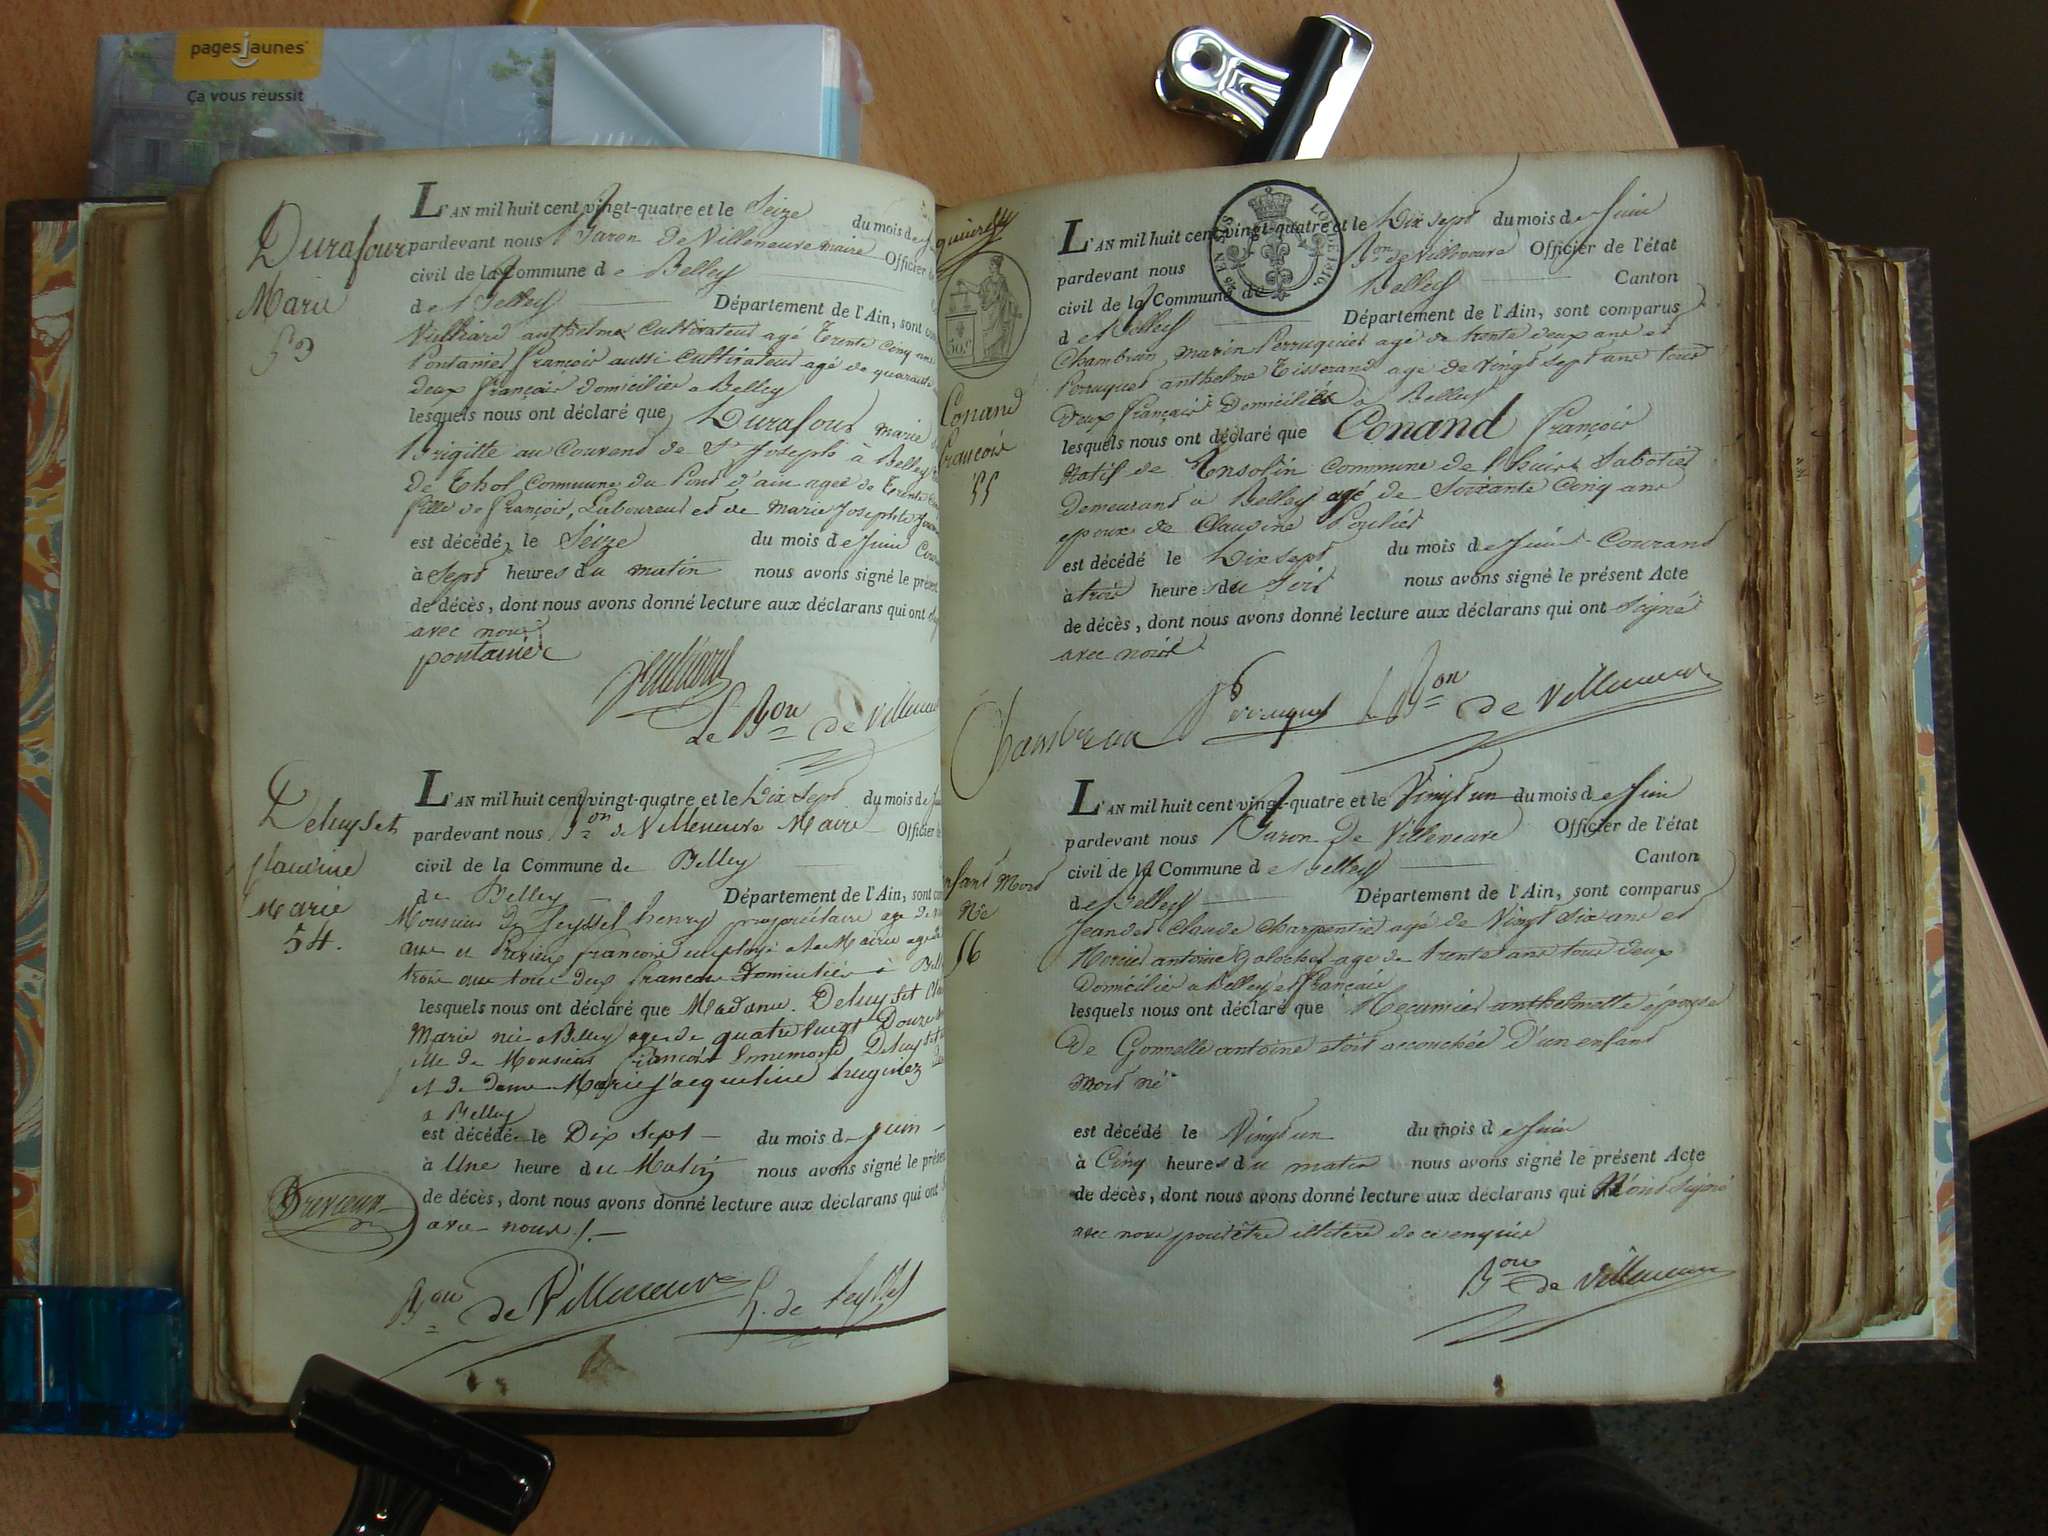 pagesjaunes
Ça vous réussit
Durafour
Marie
53
L'AN mil huit cent vingt-quatre et le Seize du mois de
pardevant nous Baron de Villeneuve maire Officier
civil de la Commune de Belley
de Belley Département de l'Ain, sont
Vulliard anthelme Cultivateur agé Trente Cinq ans
Pontanier françois aussi Cultivateur agé de quarante
deux français domicilier a Belley
lesquels nous ont déclaré que Durafour marie
Brigitte au Couvent de St Joseph à Belley
de Thol Commune du Pont d'ain agée de Trente
fille de françois, Laboureur et de marie Josephte
est décédé, le Seize du mois de Juin
à Sept heures du matin nous avons signé le
de décès, dont nous avons donné lecture aux déclarans qui ont
avec nous
pontanier
Le Bon de Villeneuve
Deluyset
Claudine
Marie
54.
L'AN mil huit cent vingt-quatre et le Dix Sept du mois de
pardevant nous Bon de Villeneuve Maire Officier
civil de la Commune de Belley
de Belley Département de l'Ain, sont
Monsieur de Seyssel henry propriétaire age de
ans et Prévieux francois employé a la Mairie age de
trois ans tous deux francais Domiciliés à
lesquels nous ont déclaré que Madame Deluyset
Marie née a Belley age de quatre vingt Douze
fille de Monsieur francois Ennemond Deluyset
et de dame Marie Jacqueline
a Belley
est décédé le Dix Sept du mois de juin
à Une heure du Matin nous avons signé le
de décès, dont nous avons donné lecture aux déclarans qui ont
avec nous /.
Previeux
Bon de Villeneuve
h. de Seyssel
50.C
Conand
francois
55
LOI DE 1816
L'AN mil huit cent vingt-quatre et le Dix sept du mois de Juin
pardevant nous Bon de Villeneuve Officier de l'état
civil de la Commune de Belley Canton
de Belley Département de l'Ain, sont comparus
Chambran, marin Perruquier agé de trente deux ans et
Perruquet anthelme Tisserand age de Vingt sept ans tous
deux français Domiciliés a Belley
lesquels nous ont déclaré que Conand françois
Natif de Ensolin Commune de Sabotier
demeurant a Belley agé de Soixante Cinq ans
epoux de Claudine
est décédé le Dix sept du mois de Juin Courant
à trois heures du Soir nous avons signé le présent Acte
de décès, dont nous avons donné lecture aux déclarans qui ont Signé
avec nous
Chambran Perruquet Bon de Villeneuve
enfant Mort
Né
56
L'AN mil huit cent vingt-quatre et le Vingt un du mois de Juin
pardevant nous Baron de Villeneuve Officier de l'état
civil de la Commune de Belley Canton
de Belley Département de l'Ain, sont comparus
Jeandet Claude Charpentier agé de Vingt Six ans et
antoine Galocher age de trente ans tous deux
Domicilier a Belley et français
lesquels nous ont déclaré que anthelmette épouse
De Gonnelle antoine etoit accouchée D'un enfant
mort né
est décédé le Vingt un du mois de Juin
à Cinq heures du matin nous avons signé le présent Acte
de décès, dont nous avons donné lecture aux déclarans qui N'ont Signé
avec nous pour être illitéré de ce enquis
Bon de Villeneuve